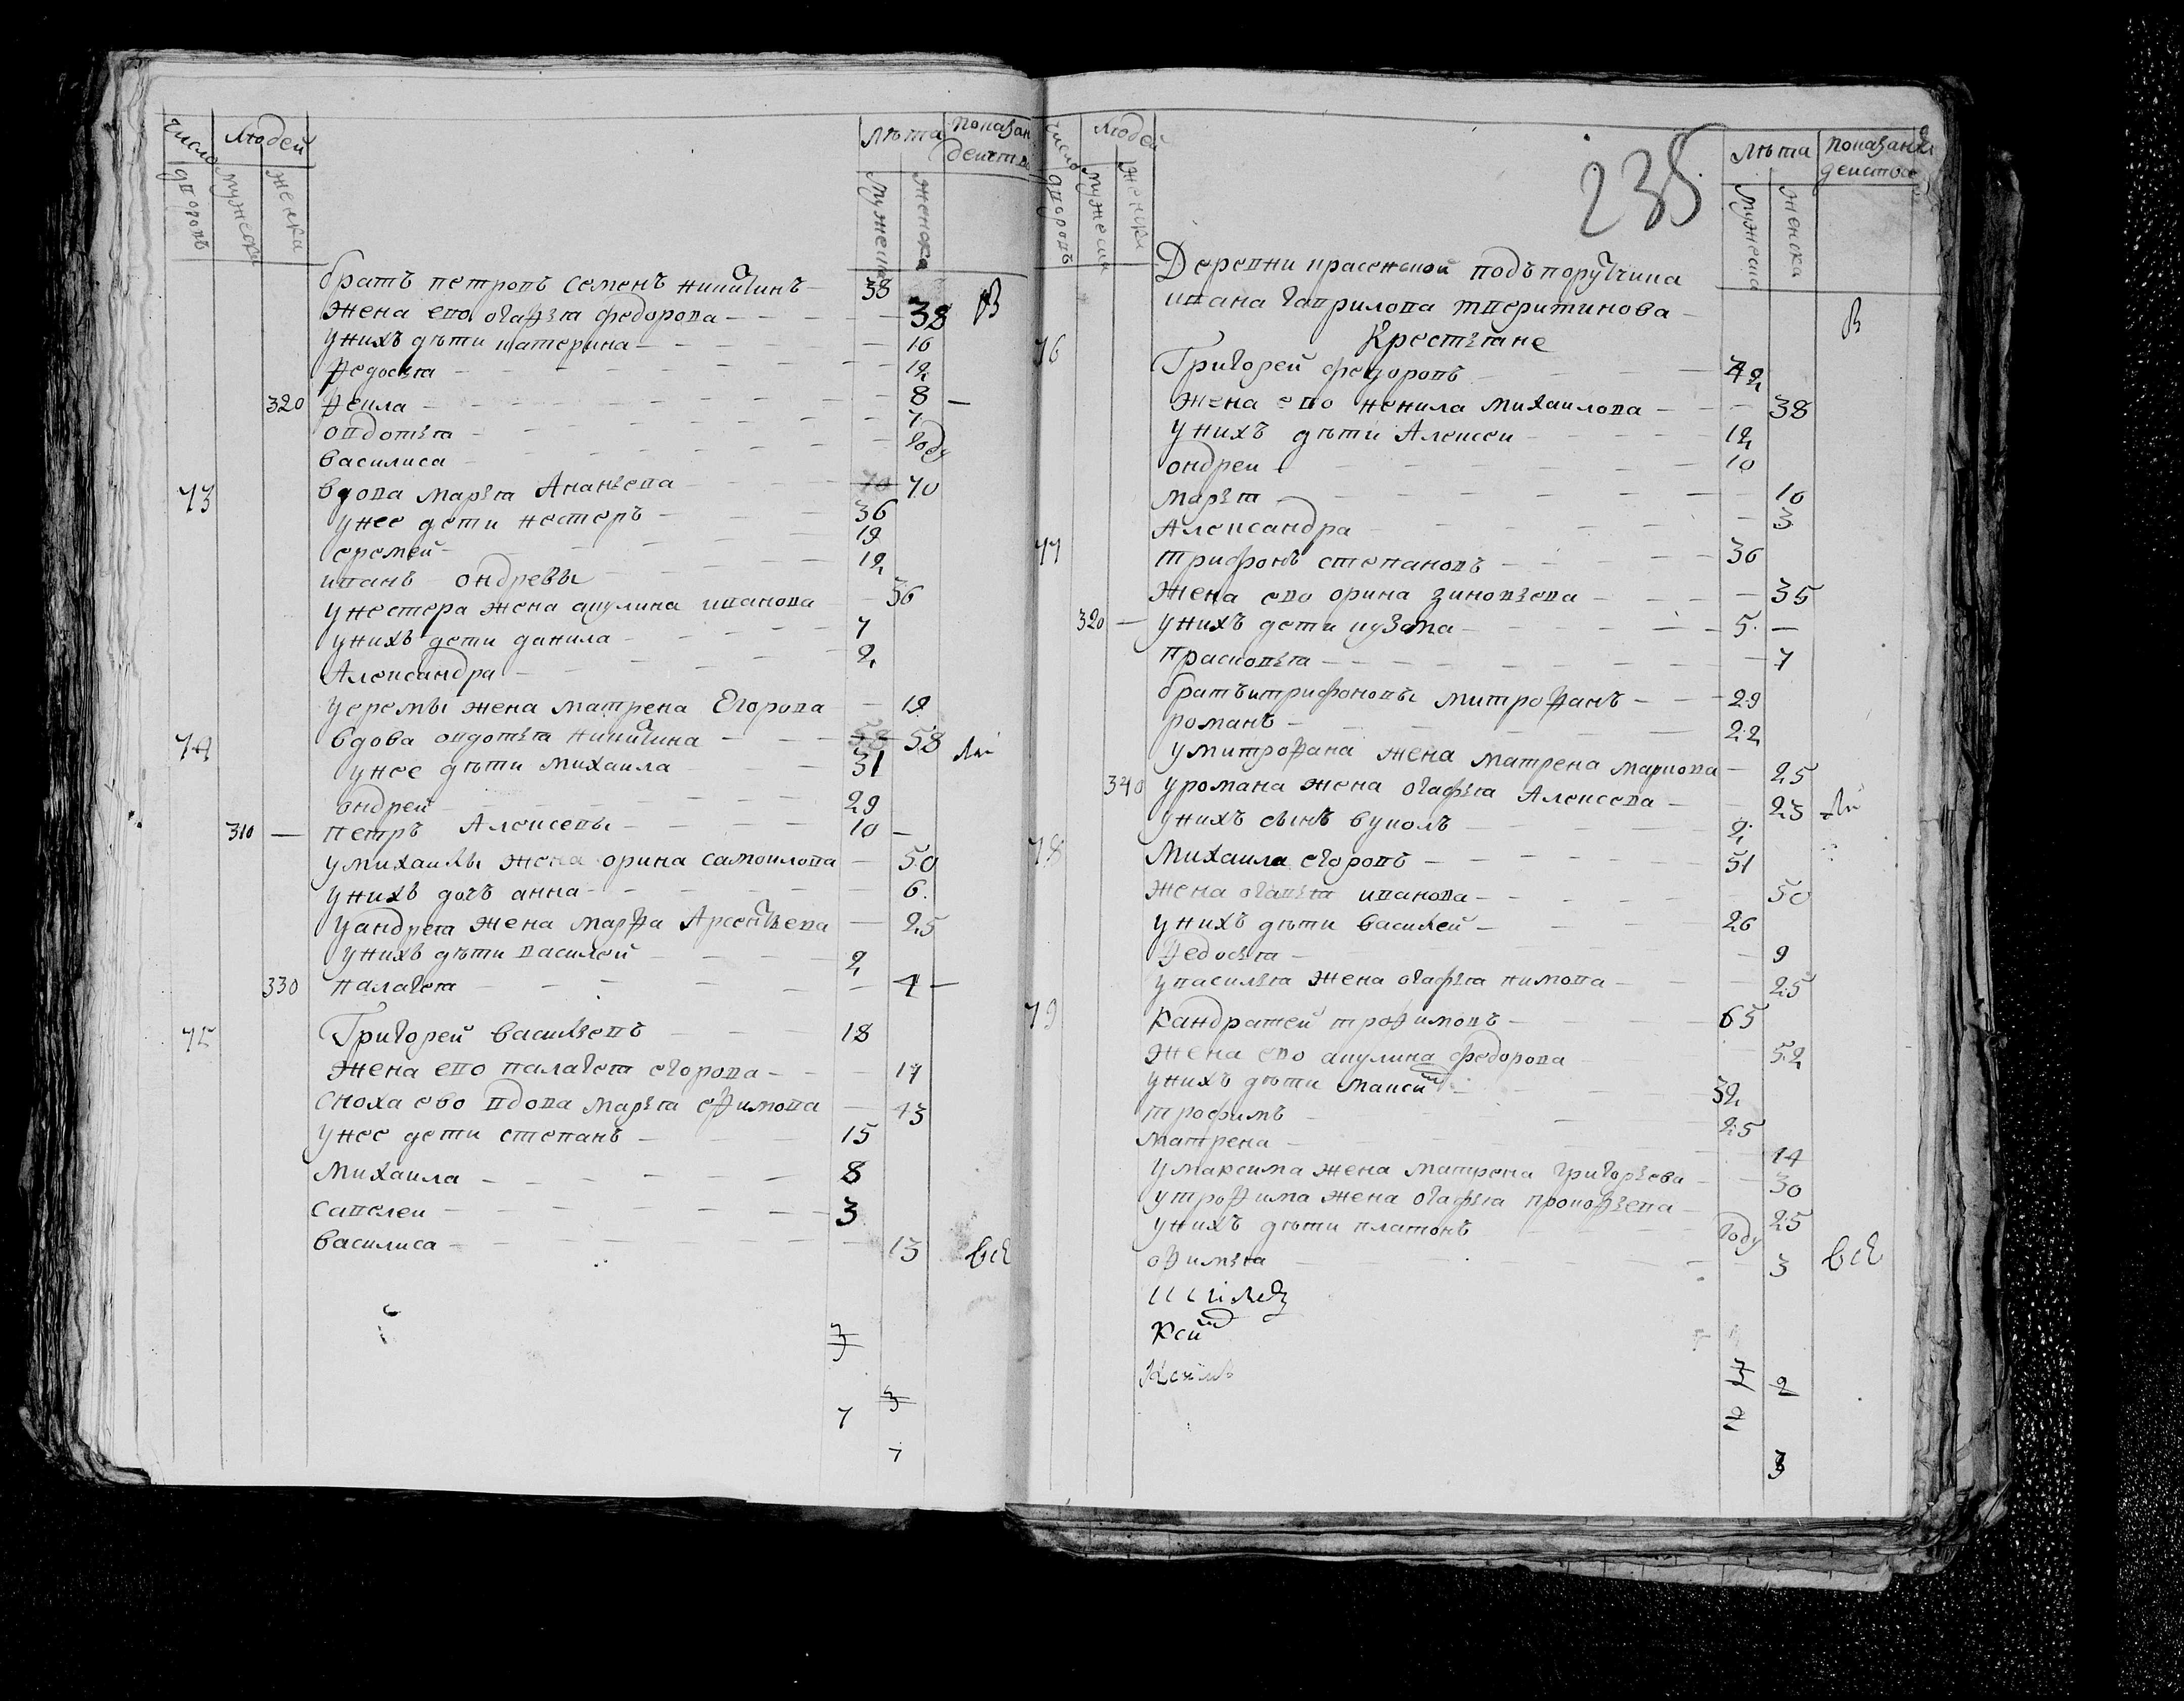 Число дворовъ Людей мужеска женска Лѣта мужеска женска показан действ
братъ петровъ семенъ никитинъ 38
жена ево огафья федорова 38 В
у нихъ дѣти катерина 16
федосья 12
320 фекла 8
овдотья 7
василиса году
73 вдова марья Ананьева 70 70
у нее дети нестеръ 36
еремей 19
иванъ ондревы 12
у нестера жена акулина иванова 36
у нихъ дети данила 7
Александра 2
у еремы жена матрена Егорова 19
74 вдова овдотья никитина 58 58
у нее дѣти михаила 31
ондрей 29
310 петръ Алексевы 10
у михаилы жена орина самоилова 50
у нихъ дочъ анна 6
у андрея жена марфа Арсентьева 25
у нихъ дѣти василей 2
330 палагея 4
75 Григорей васильевъ 18
жена ево палагея егорова 17
сноха ево вдова марья ефимова 43
у нее дети степанъ 15
михаила 8
савелеи 3
василиса 13
3
3
7
7
235
Число дворовъ Людей мужеска женска Лѣта мужеска женска показан действ
Деревни красенской подъпоручика
ивана гаврилова тверитинова В
Крестьяне
76 Григорей федоровъ 42
жена ево ненила михаилова 38
у нихъ дѣти Алексеи 12
ондреи 10
марья 10
Александра 3
77 трифонъ степановъ 36
жена ево орина зиновьева 35
320 у нихъ дети кузма 5
прасковья 7
братья трифоновы митрофанъ 29
романъ 22
у митрофана жена матрена маркова 25
340 у романа жена огафья Алексева 23
у нихъ сынъ вуколъ 2
78 Михаила егоровъ 51
жена огафья иванова 50
у нихъ дѣти василей 26
федосья 9
у василья жена огафья климова 25
79 Кандратей трофимовъ 65
жена ево акулина федорова 52
у нихъ дѣти максим 32
трофимъ 25
матрена 14
у максима жена матрена григорьева 30
у трофима жена огафья прокофьева 25
у нихъ дѣти платонъ году
офимья 3
7 2
7
3